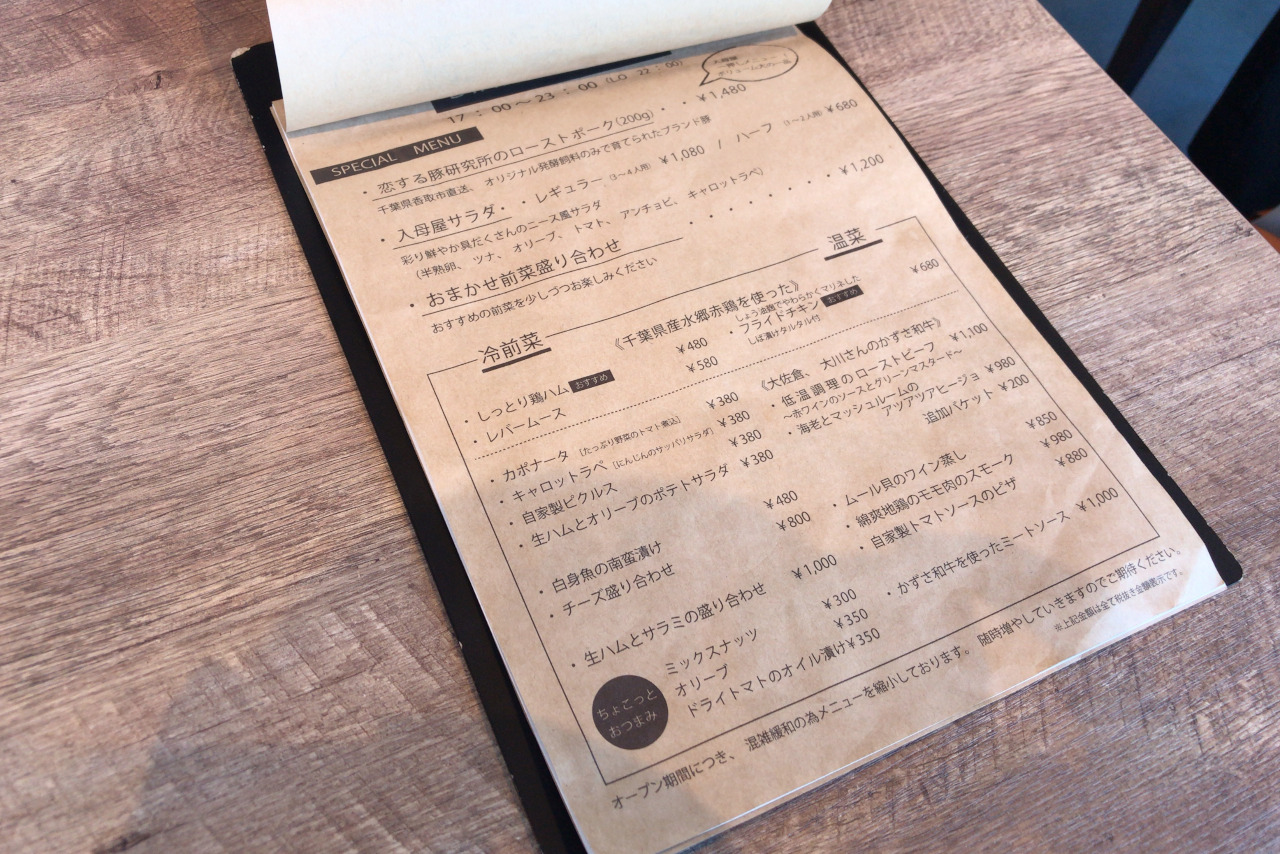 17：00～23：00（LO 22：00）
SPECIAL MENU
・恋する豚研究所のローストポーク（200g）・・¥1,480
千葉県香取市直送、オリジナル発酵飼料のみで育てられたブランド豚
・入母屋サラダ・・レギュラー（3～4人用）¥1,080 / ハーフ（1～2人用）¥680
彩り鮮やか具だくさんのニース風サラダ
（半熟卵、ツナ、オリーブ、トマト、アンチョビ、キャロットラペ）
・おまかせ前菜盛り合わせ・・・・・・・¥1,200
おすすめの前菜を少しづつお楽しみください
冷前菜
温菜
《千葉県産水郷赤鶏を使った》
・しっとり鶏ハム おすすめ ¥480
・レバームース ¥580
しょう油麹でやわらかくマリネした
・フライドチキン おすすめ ¥680
しば漬けタルタル付
・カポナータ［たっぷり野菜のトマト煮込］ ¥380
・キャロットラペ［にんじんのサッパリサラダ］ ¥380
・自家製ピクルス ¥380
・生ハムとオリーブのポテトサラダ ¥380
・白身魚の南蛮漬け ¥480
・チーズ盛り合わせ ¥800
・生ハムとサラミの盛り合わせ ¥1,000
《大佐倉、大川さんのかずさ和牛》
・低温調理のローストビーフ ¥1,100
～赤ワインのソースとグリーンマスタード～
・海老とマッシュルームの
アツアツアヒージョ ¥980
追加バケット ¥200
・ムール貝のワイン蒸し ¥850
・綿爽地鶏のモモ肉のスモーク ¥980
・自家製トマトソースのピザ ¥880
・かずさ和牛を使ったミートソース ¥1,000
ちょこっと
おつまみ
ミックスナッツ ¥300
オリーブ ¥350
ドライトマトのオイル漬け¥350
オープン期間につき、混雑緩和の為メニューを縮小しております。随時増やしていきますのでご期待ください。
※上記金額は全て税抜き金額表示です。